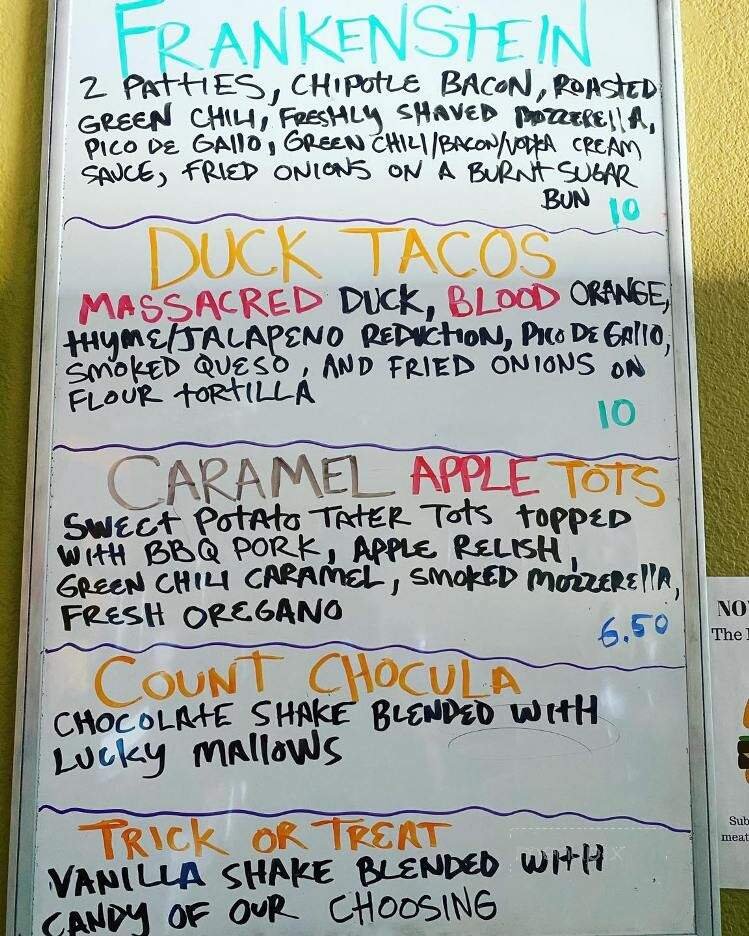 FRANKENSTEIN
2 PATTIES, CHIPOTLE BACON, ROASTED
GREEN CHILI, FRESHLY SHAVED MOZZERELLA,
PICO DE GALLO, GREEN CHILI/BACON/VODKA CREAM
SAUCE, FRIED ONIONS ON A BURNT SUGAR
BUN 10
DUCK TACOS
MASSACRED DUCK, BLOOD ORANGE,
THYME/JALAPENO REDUCTION, PICO DE GALLO,
SMOKED QUESO, AND FRIED ONIONS ON
FLOUR TORTILLA
10
CARAMEL APPLE TOTS
SWEET POTATO TATER TOTS TOPPED
WITH BBQ PORK, APPLE RELISH,
GREEN CHILI CARAMEL, SMOKED MOZZERELLA,
FRESH OREGANO
6.50
COUNT CHOCULA
CHOCOLATE SHAKE BLENDED WITH
LUCKY MALLOWS
TRICK OR TREAT
VANILLA SHAKE BLENDED WITH
CANDY OF OUR CHOOSING
The
Sub
meat